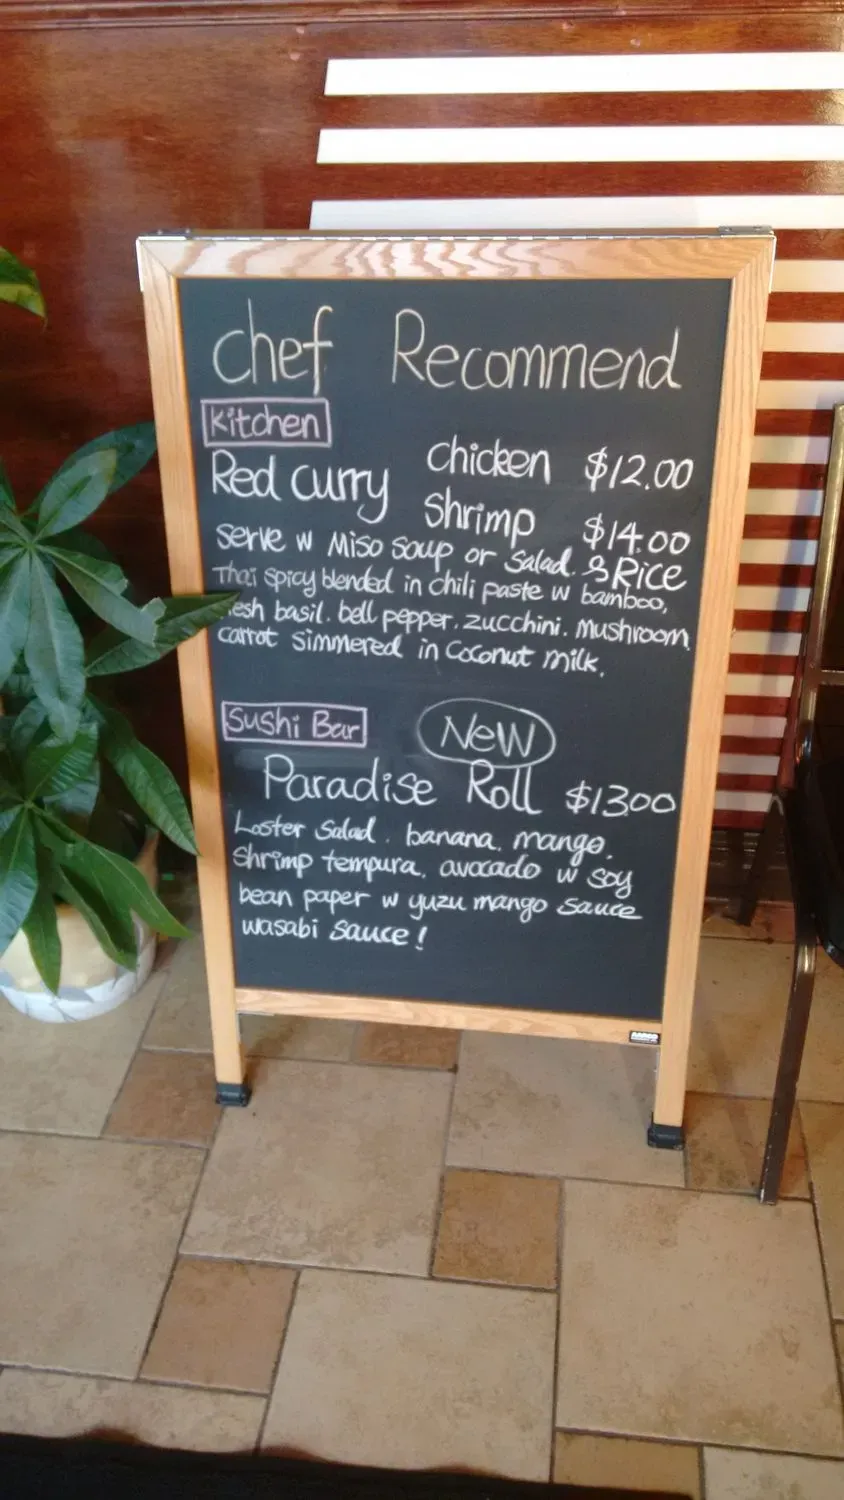 chef Recommend
Kitchen
Red curry chicken $12.00
shrimp $14.00
serve w Miso soup or Salad. & Rice
Thai spicy blended in chili paste w bamboo,
basil. bell pepper. zucchini. mushroom
carrot simmered in Coconut milk.
Sushi Bar NeW
Paradise Roll $13.00
Loster Salad. banana. mango.
shrimp tempura. avocado w soy
bean paper w yuzu mango sauce
wasabi sauce!